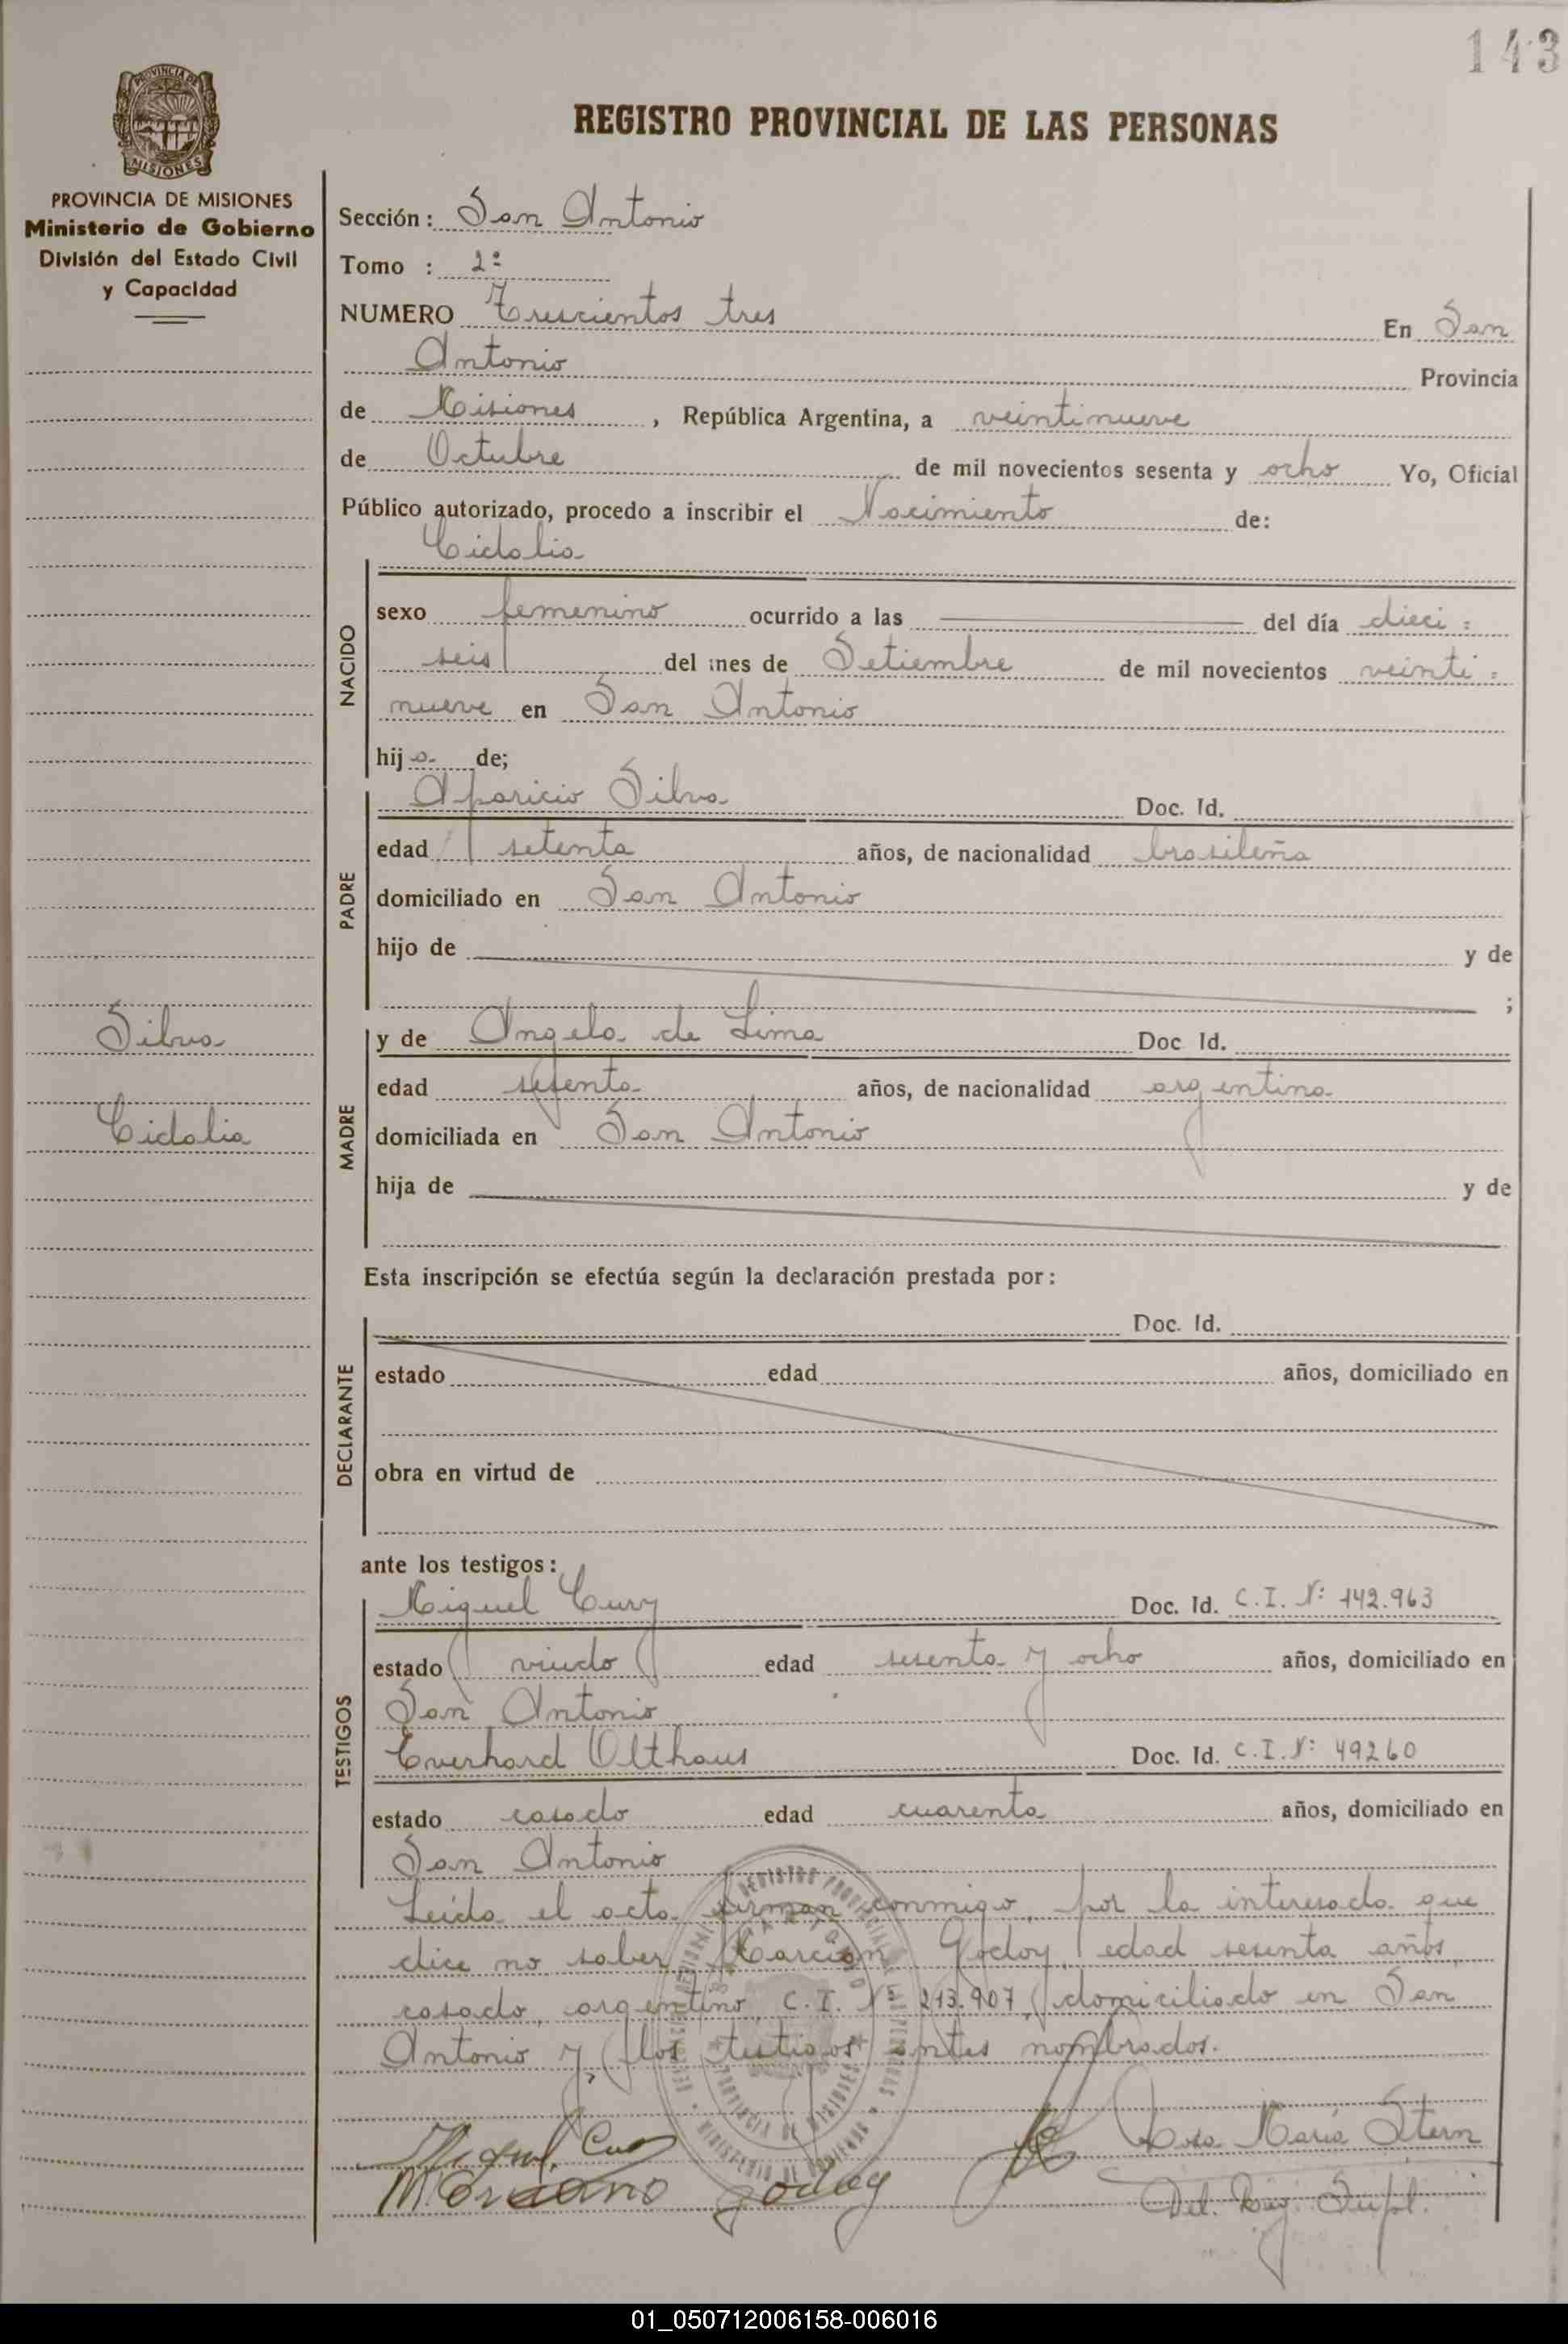 143
PROVINCIA DE
MISIONES
REGISTRO PROVINCIAL DE LAS PERSONAS
PROVINCIA DE MISIONES
Ministerio de Gobierno
División del Estado Civil
y Capacidad
Sección: San Antonio
Tomo : 2º
NUMERO Trescientos tres En San
Antonio Provincia
de Misiones, República Argentina, a veintinueve
de Octubre de mil novecientos sesenta y ocho Yo, Oficial
Público autorizado, procedo a inscribir el Nacimiento de:
Cidalia
NACIDO
sexo femenino ocurrido a las del día dieci=
seis del mes de Setiembre de mil novecientos veinti=
nueve en San Antonio
hija de;
PADRE
Aparicio Silva Doc. Id.
edad setenta años, de nacionalidad brasileña
domiciliado en San Antonio
hijo de y de
;
Silva
Cidalia
MADRE
y de Angela de Lima Doc Id.
edad años, de nacionalidad argentina
domiciliada en San Antonio
hija de y de
Esta inscripción se efectúa según la declaración prestada por:
DECLARANTE
Doc. Id.
estado edad años, domiciliado en
obra en virtud de
ante los testigos:
TESTIGOS
Miguel Cury Doc. Id. C.I. Nº 142.963
estado viudo edad sesenta y ocho años, domiciliado en
San Antonio
Everhard Olthaus Doc. Id. C.I. Nº 49260
estado casado edad cuarenta años, domiciliado en
San Antonio
Leida el acta firman conmigo, por la interesada que
dice no saber, Marciano Godoy, edad sesenta años,
casado, argentino, C.I. Nº 213.907, domiciliado en San
Antonio y los testigos antes nombrados.
Miguel Cury
Marciano Godoy
Rosa María Stern
Del. Reg. Supl.
01_050712006158-006016